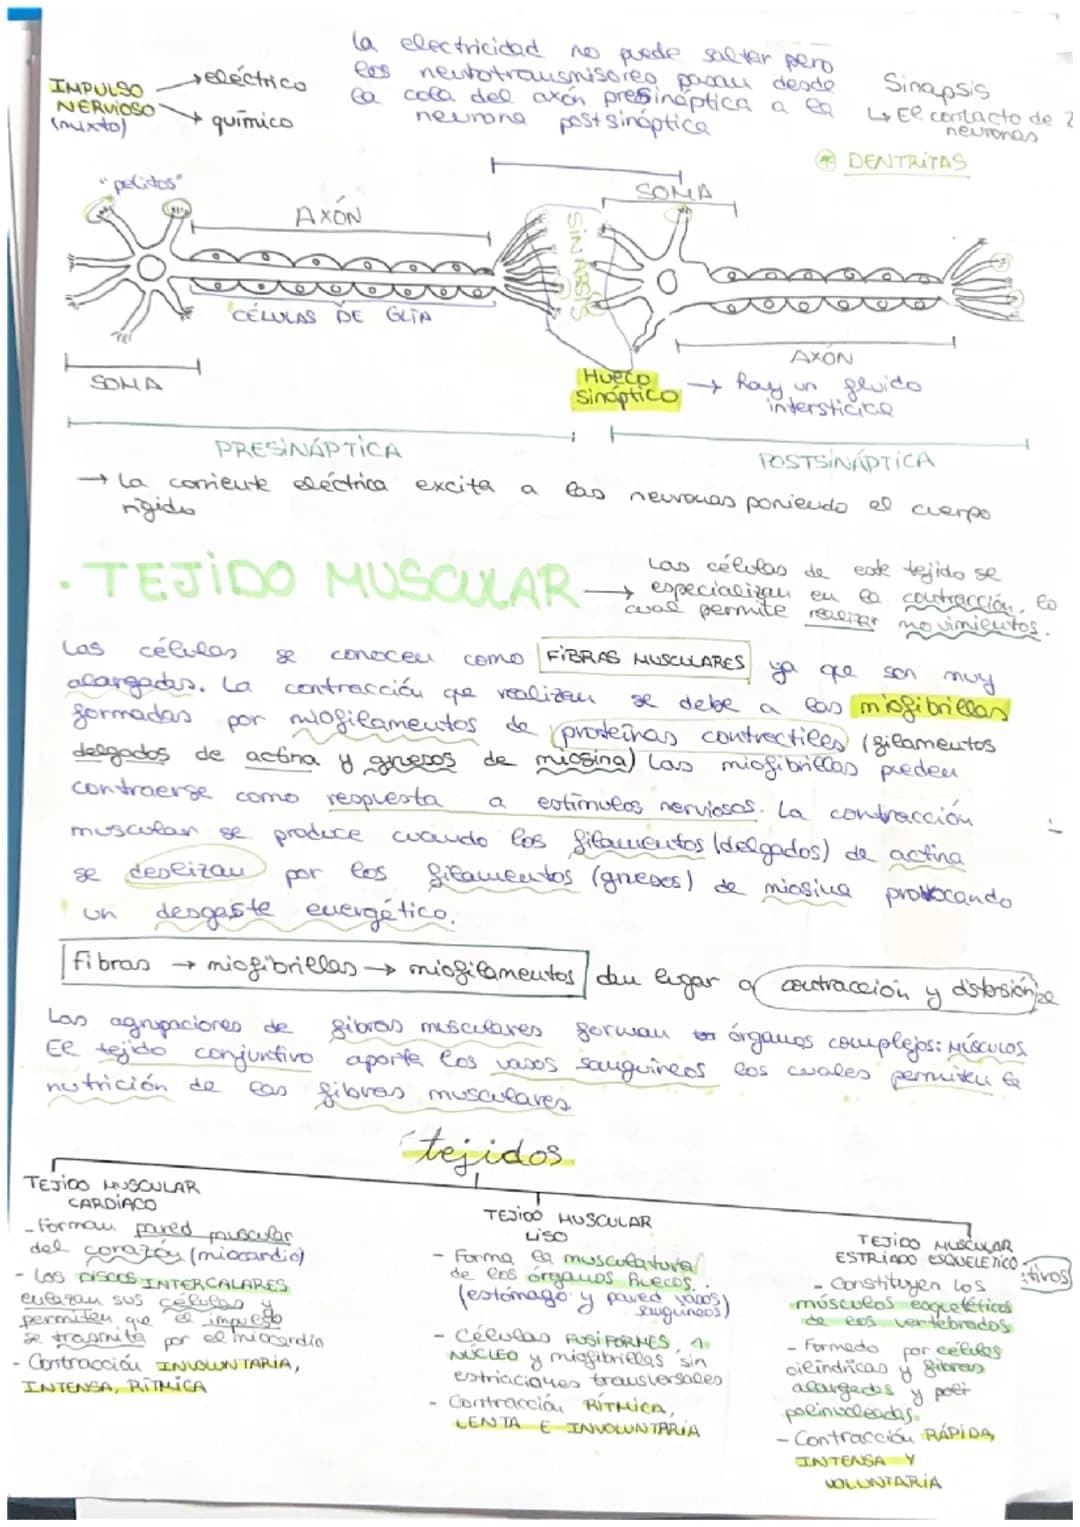 la electricidad no puede salter pero
los neurotransmisores pasau desde
la cola del axón presináptica a la
neurona postsináptica
IMPULSO
NERVIOSO
(mixto)
→ eléctrico
→ químico
Sinapsis
↳ El contacto de 2
neuronas
* DENTRITAS
"pelitos"
AXÓN
SOMA
SINAPSIS
CÉLULAS DE GLÍA
SOMA
AXÓN
Hueco
sináptico
→ hay un fluido
intersticial
PRESINÁPTICA
POSTSINÁPTICA
→ La corriente eléctrica excita a las neuronas poniendo el cuerpo
rígido
· TEJIDO MUSCULAR →
Las células de este tejido se
especializan en la contracción, lo
cual permite realizar movimientos.
Las células se conocen como FIBRAS MUSCULARES ya que son muy
alargadas. La contracción que realizan se debe a las miofibrillas
formadas por miofilamentos de proteínas contractiles (filamentos
delgados de actina y gruesos de miosina) Las miofibrillas pueden
contraerse como respuesta a estímulos nerviosos. La contracción
muscular se produce cuando los filamentos (delgados) de actina
se deslizan por los filamentos (gruesos) de miosina provocando
un desgaste energético.
fibras → miofibrillas → miofilamentos dan lugar a contracción y distorsión
Las agrupaciones de fibras musculares forman órganos complejos: MÚSCULOS
El tejido conjuntivo aporta los vasos sanguíneos los cuales permiten la
nutrición de las fibras musculares
tejidos
TEJIDO MUSCULAR
CARDÍACO
- Forman pared muscular
del corazón (miocardio)
- Los DISCOS INTERCALARES
enlazan sus células y
permiten que el impulso
se trasmita por el miocardio
- Contracción INVOLUNTARIA,
INTENSA, RÍTMICA
TEJIDO MUSCULAR
LISO
- Forma la musculatura
de los órganos huecos.
(estómago y pared vasos
sanguíneos)
- Células FUSIFORMES, 1
NÚCLEO y miofibrillas sin
estriaciones transversales
- Contracción RÍTMICA,
LENTA E INVOLUNTARIA
TEJIDO MUSCULAR
ESTRIADO ESQUELÉTICO
- Constituyen los
músculos esqueléticos
de los vertebrados
- Formado por células
cilíndricas y fibras
alargadas y
polinucleadas.
- Contracción RÁPIDA,
INTENSA Y
VOLUNTARIA